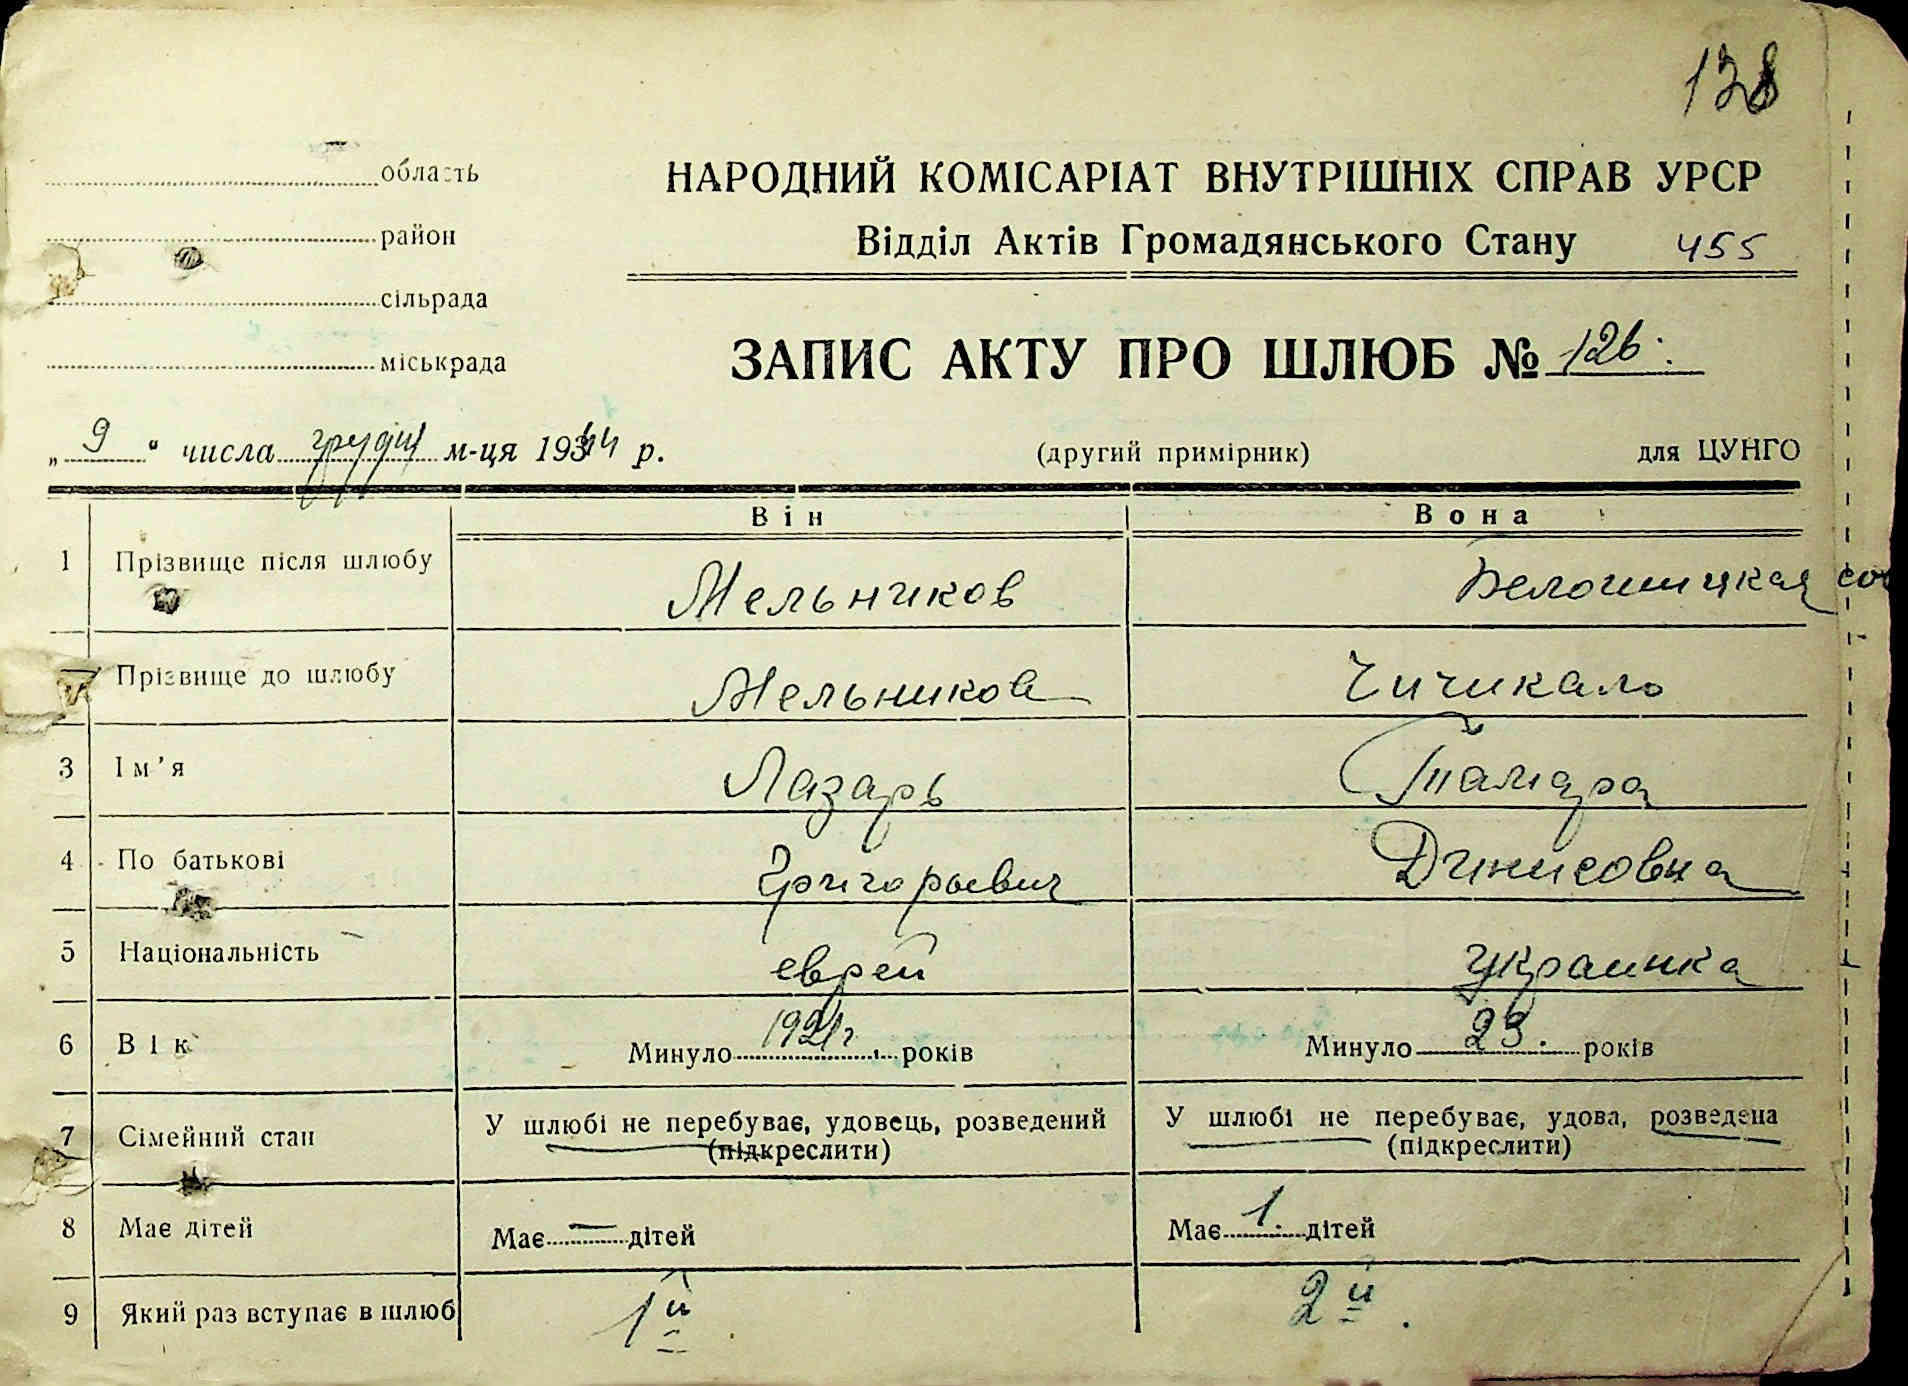 138
область
НАРОДНИЙ КОМІСАРІАТ ВНУТРІШНІХ СПРАВ УРСР
район
Відділ Актів Громадянського Стану 455
сільрада
міськрада
ЗАПИС АКТУ ПРО ШЛЮБ № 126.
„ 9 " числа грудня м-ця 1944 р. (другий примірник) для ЦУНГО
Він Вона
1 Прізвище після шлюбу Мельников Белошицкая
Прізвище до шлюбу Мельников Чичикало
3 Ім'я Лазарь Тамара
4 По батькові Григорьевич Динисовна
5 Національність еврей украинка
6 Вік Минуло 1921 г. років Минуло 23. років
7 Сімейний стан У шлюбі не перебуває, удовець, розведений (підкреслити) У шлюбі не перебуває, удова, розведена (підкреслити)
8 Має дітей Має — дітей Має 1. дітей
9 Який раз вступає в шлюб 1й 2й.